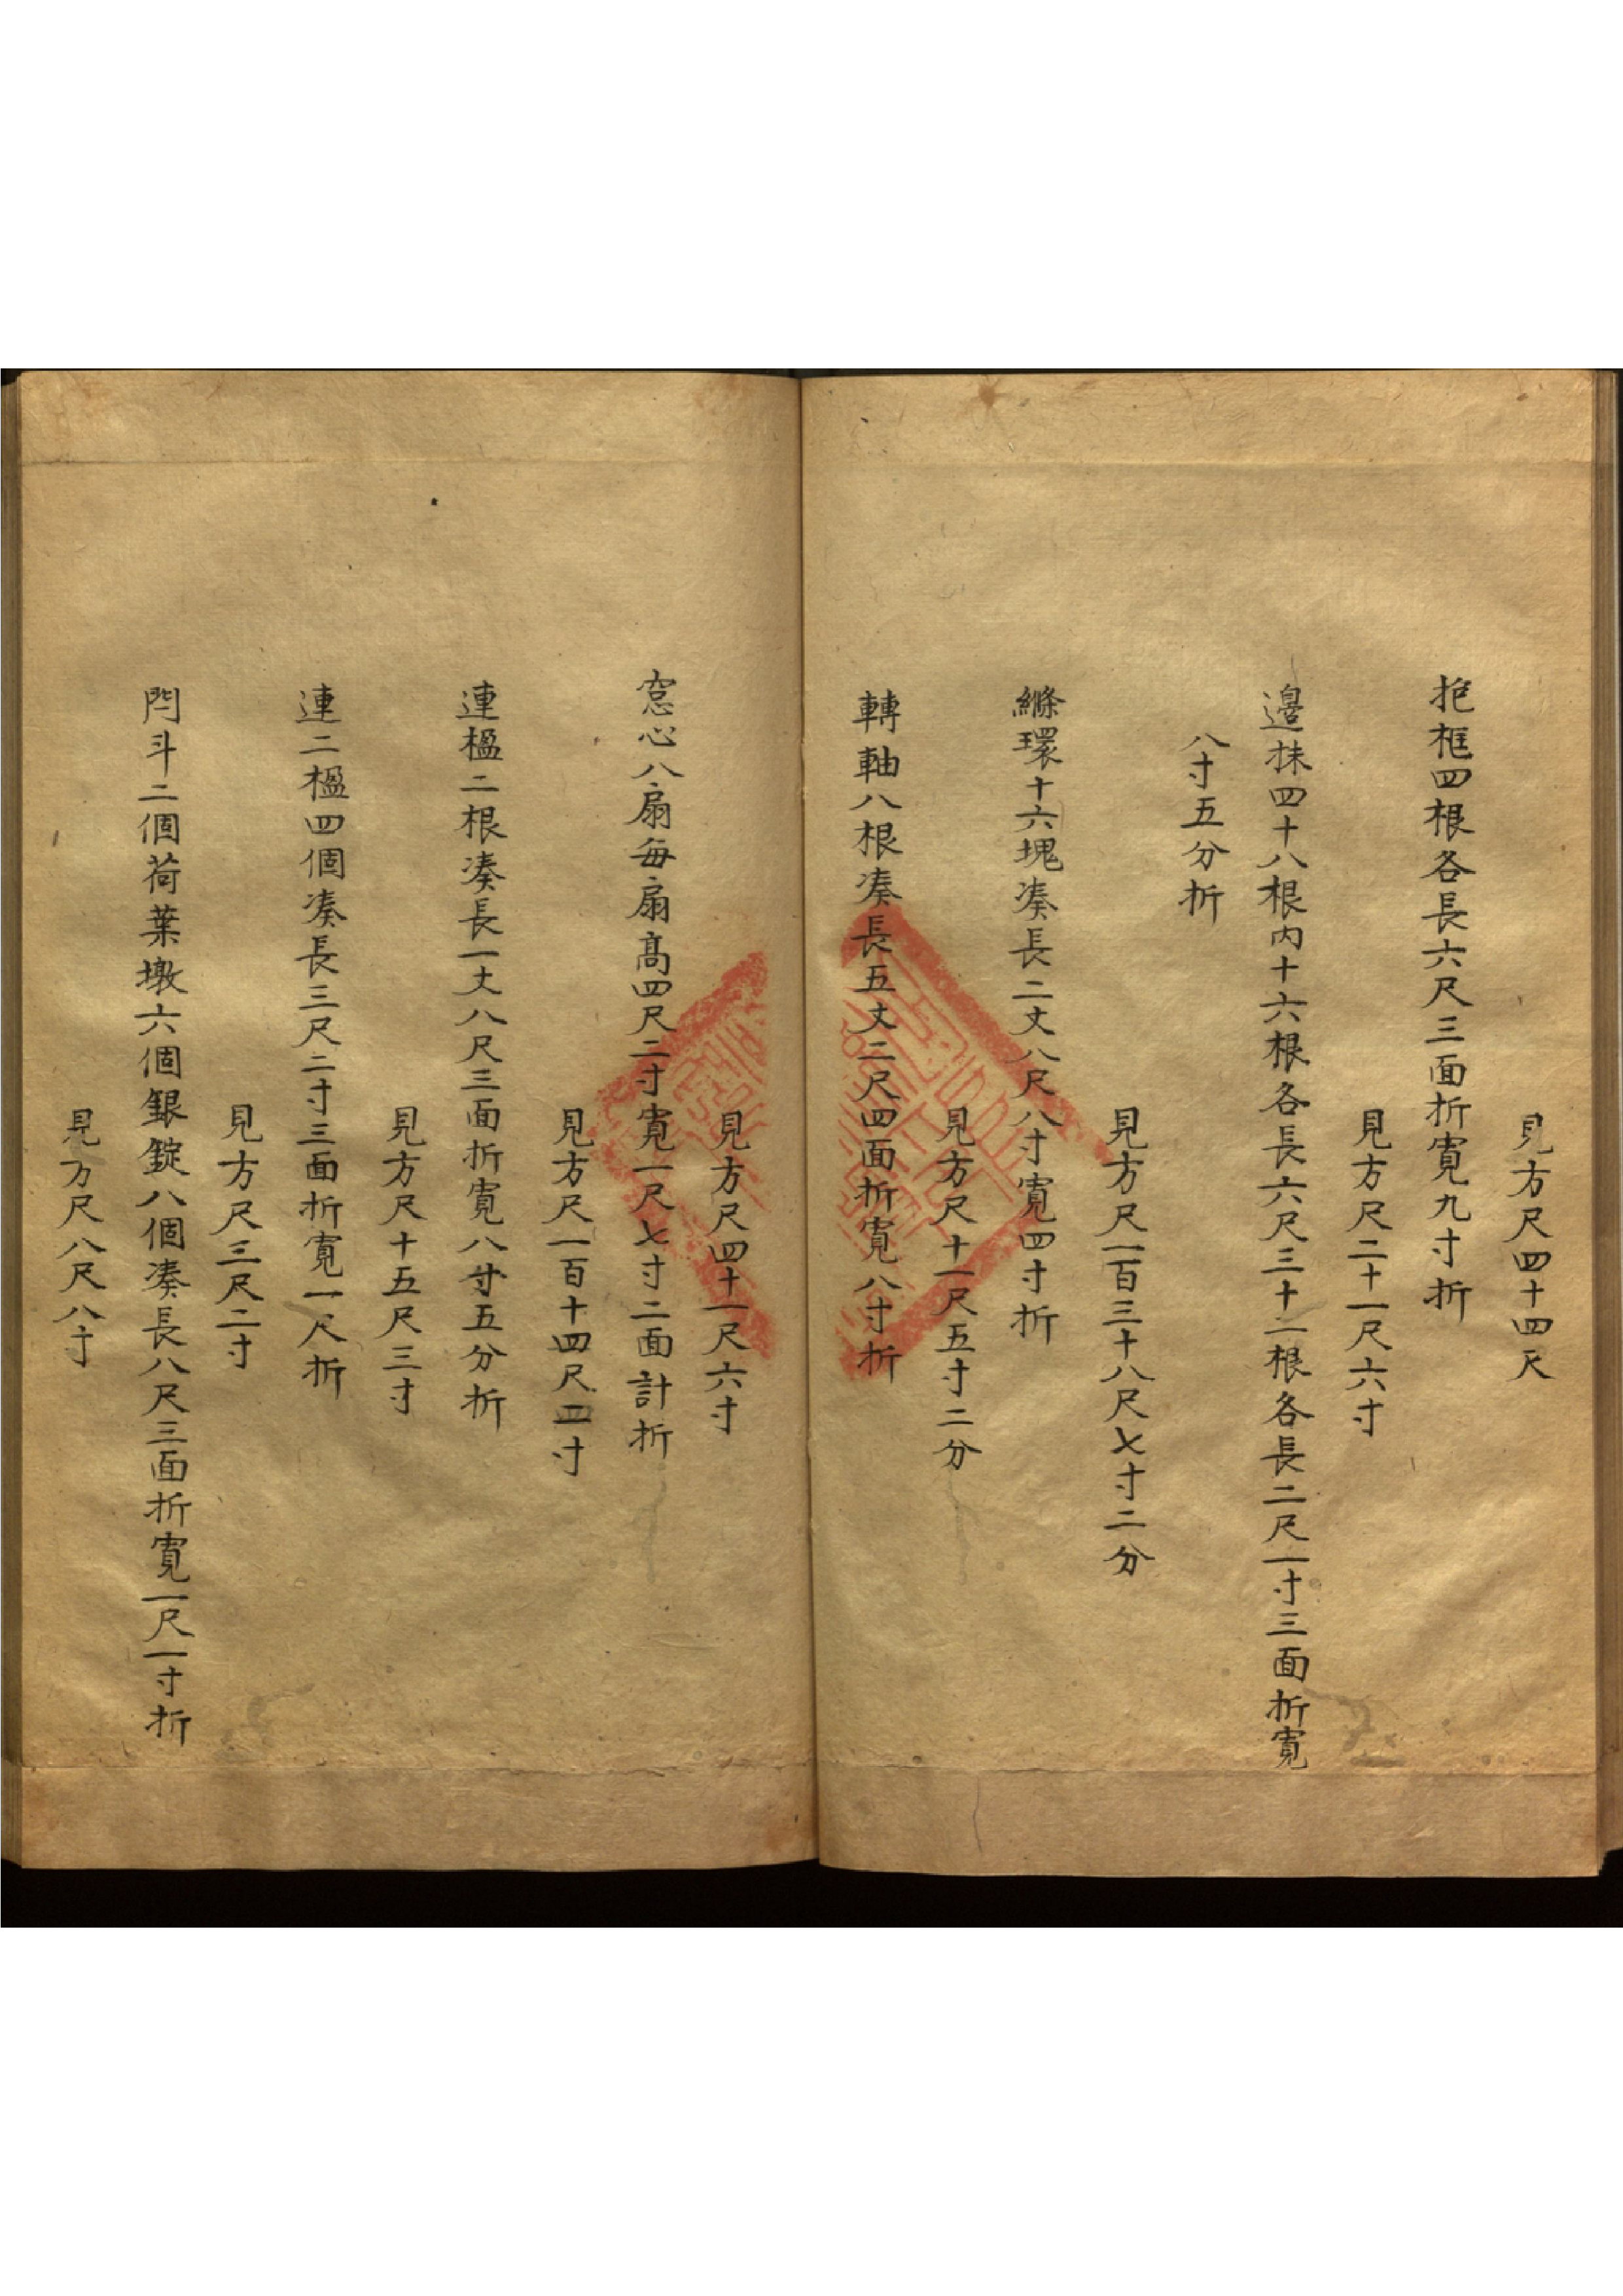 見方尺四十四尺
抱框四根各長六尺三面折寬九寸折
見方尺二十一尺六寸
邊抹四十八根內十六根各長六尺三十二根各長二尺一寸三面折寬
八寸五分折
見方尺一百三十八尺七寸二分
縧環十六塊湊長二丈八尺八寸寬四寸折
見方尺十一尺五寸二分
轉軸八根湊長五丈二尺四面折寬八寸折
見方尺四十一尺六寸
窓心八扇每扇高四尺二寸寬一尺七寸二面計折
見方尺一百十四尺二寸
連楹二根湊長一丈八尺三面折寬八寸五分折
見方尺十五尺三寸
連二楹四個湊長三尺二寸三面折寬一尺折
見方尺三尺二寸
閂斗二個荷葉墩六個銀錠八個湊長八尺三面折寬一尺一寸折
見方尺八尺八寸